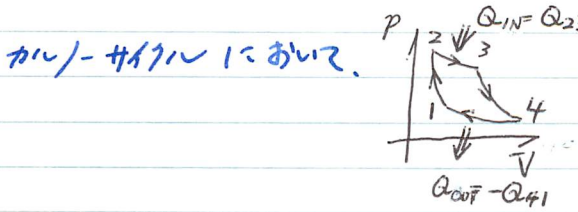 カルノーサイクルにおいて、
P
Q_IN = Q_2
2
3
1
4
V
Q_OUT - Q_41